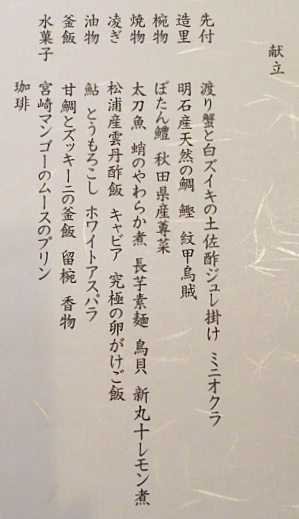 献立
先付 渡り蟹と白ズイキの土佐酢ジュレ掛け ミニオクラ
造里 明石産天然の鯛 鰹 紋甲烏賊
椀物 ぼたん鱧 秋田県産蓴菜
焼物 太刀魚 蛸のやわらか煮 長芋素麺 鳥貝 新丸十レモン煮
凌ぎ 松浦産雲丹酢飯 キャビア 究極の卵がけご飯
油物 鮎 とうもろこし ホワイトアスパラ
釜飯 甘鯛とズッキーニの釜飯 留椀 香物
水菓子 宮崎マンゴーのムースのプリン
珈琲